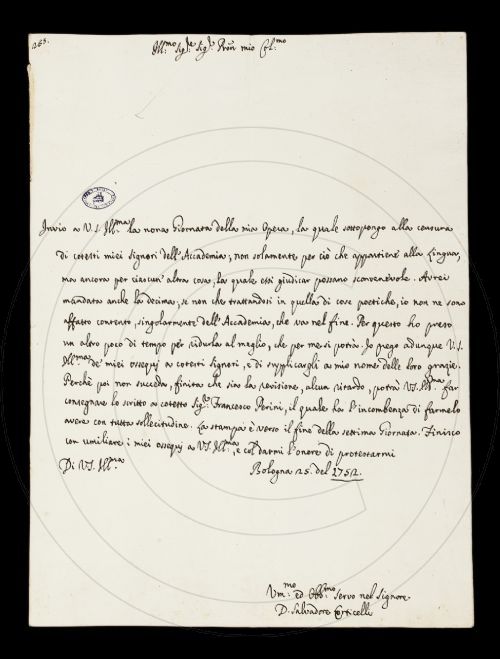 263.
Ill:mo Sig:re Sig:r Pron mio Col:mo
Invio a V.S. Ill:ma la nona Giornata della mia Opera, la quale sottopongo alla censura
di cotesti miei Signori dell'Accademia, non solamente per ciò che appartiene alla Lingua,
ma ancora per ciascun'altra cosa, la quale essi giudicar possano sconvenevole. Avrei
mandato anche la decima, se non che trattandosi in quella di cose poetiche, io non ne sono
affatto contento, singolarmente dell'Accademia, che va nel fine. Per questo ho preso
un altro poco di tempo per ridurla al meglio, che per me si potrà. Io prego adunque V.S.
Ill:ma de' miei ossequj a cotesti Signori, e di supplicargli a mio nome delle loro grazie.
Perchè poi non succeda, finita che sia la revisione, alcun ritardo, potrà VS. Ill:ma far
consegnare lo scritto a cotesto Sig:r Francesco Perini, il quale ha l'incombenza di farmelo
avere con tutta sollecitudine. La stampa è verso il fine della settima Giornata. Finisco
con umiliare i miei ossequj a VS. Ill:ma, e col darmi l'onore di protestarmi
Di VS. Ill:ma
Bologna 25. del 1752.
Um:mo ed Obb:mo servo nel Signore
D. Salvadore Corticelli